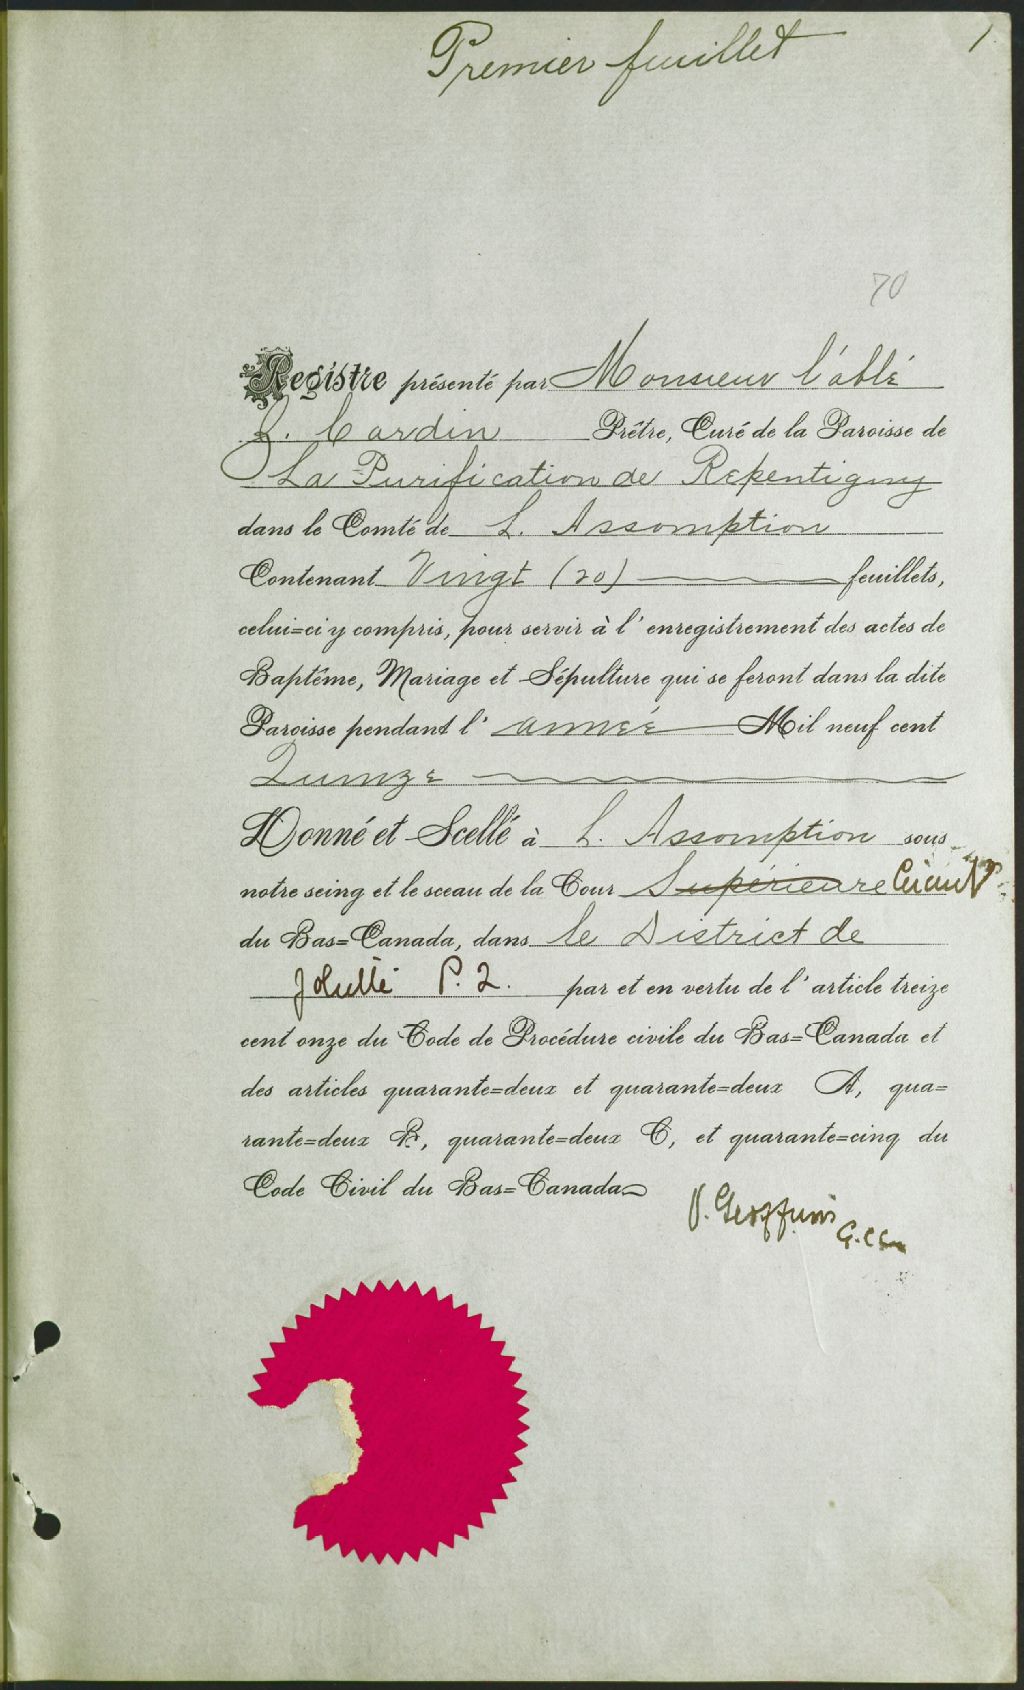 Premier feuillet 1
70
Registre présenté par Monsieur l'abbé
J. Cardin Prêtre, Curé de la Paroisse de
La Purification de Repentigny
dans le Comté de L. Assomption
Contenant Vingt (20) feuillets,
celui=ci y compris, pour servir à l'enregistrement des actes de
Baptême, Mariage et Sépulture qui se feront dans la dite
Paroisse pendant l'année Mil neuf cent
Quinze
Donné et Scellé à L. Assomption sous
notre seing et le sceau de la Cour Supérieure Circuit
du Bas=Canada, dans le District de
Joliette P.Q. par et en vertu de l'article treize
cent onze du Code de Procédure civile du Bas=Canada et
des articles quarante=deux et quarante=deux A, qua=
rante=deux B, quarante=deux C, et quarante=cinq du
Code Civil du Bas=Canada